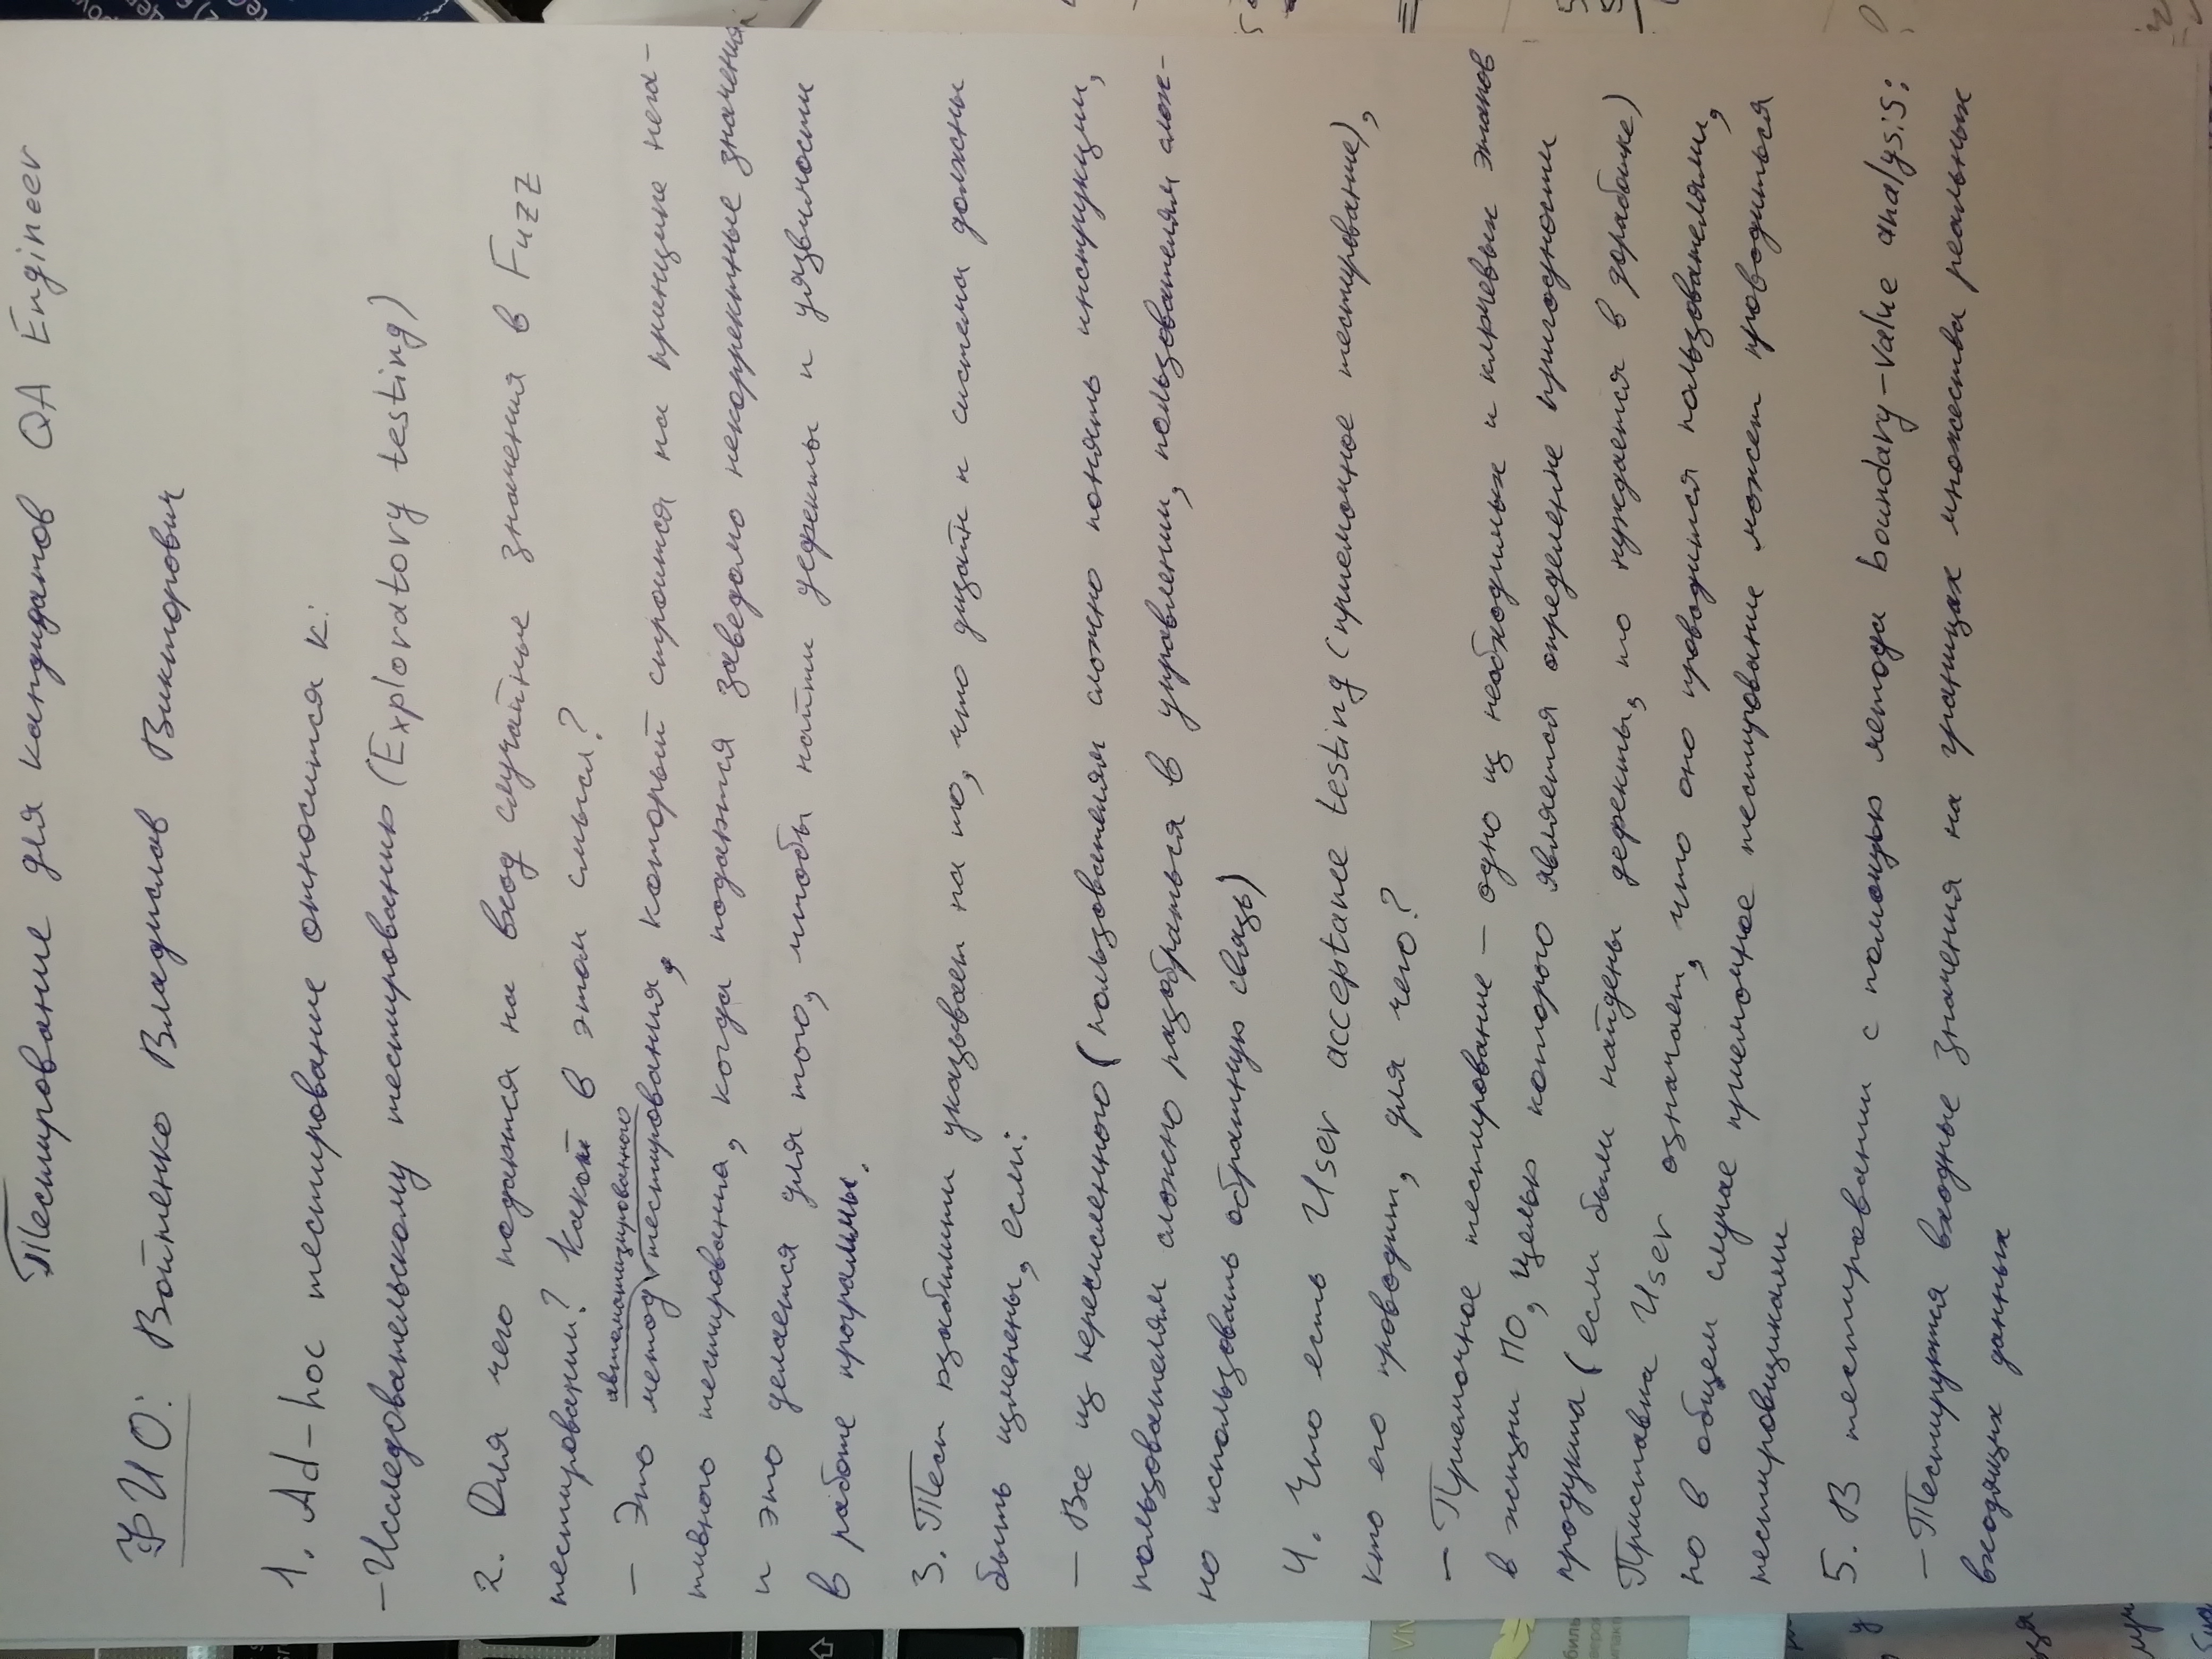 Тестирование для кандидатов QA Engineer
ФИО: Войтенко Владислав Викторович
1. Ad-hoc тестирование относится к:
- Исследовательскому тестированию (Exploratory testing)
2. Для чего подаются на вход случайные значения в Fuzz
тестировании? Какой в этом смысл?
автоматизированного
- Это метод тестирования, который строится на принципе нега-
тивного тестирования, когда подаются заведомо некорректные значения
и это делается для того, чтобы найти дефекты и уязвимости
в работе программы.
3. Тест юзабилити указывает на то, что дизайн и система должны
быть изменены, если:
- Все из перечисленного (пользователям сложно понять инструкции,
пользователям сложно разобраться в управлении, пользователям слож-
но использовать обратную связь)
4. Что есть User acceptance testing (приемочное тестирование),
кто его проводит, для чего?
- Приемочное тестирование - одно из необходимых и ключевых этапов
в жизни ПО, целью которого является определение пригодности
продукта (если были найдены дефекты, то нуждается в доработке)
Приставка User означает, что оно проводится пользователями,
но в общем случае приемочное тестирование может проводиться
тестировщиками
5. В тестировании с помощью метода boundary-value analysis:
- Тестируются входные значения на границах множества реальных
входящих данных